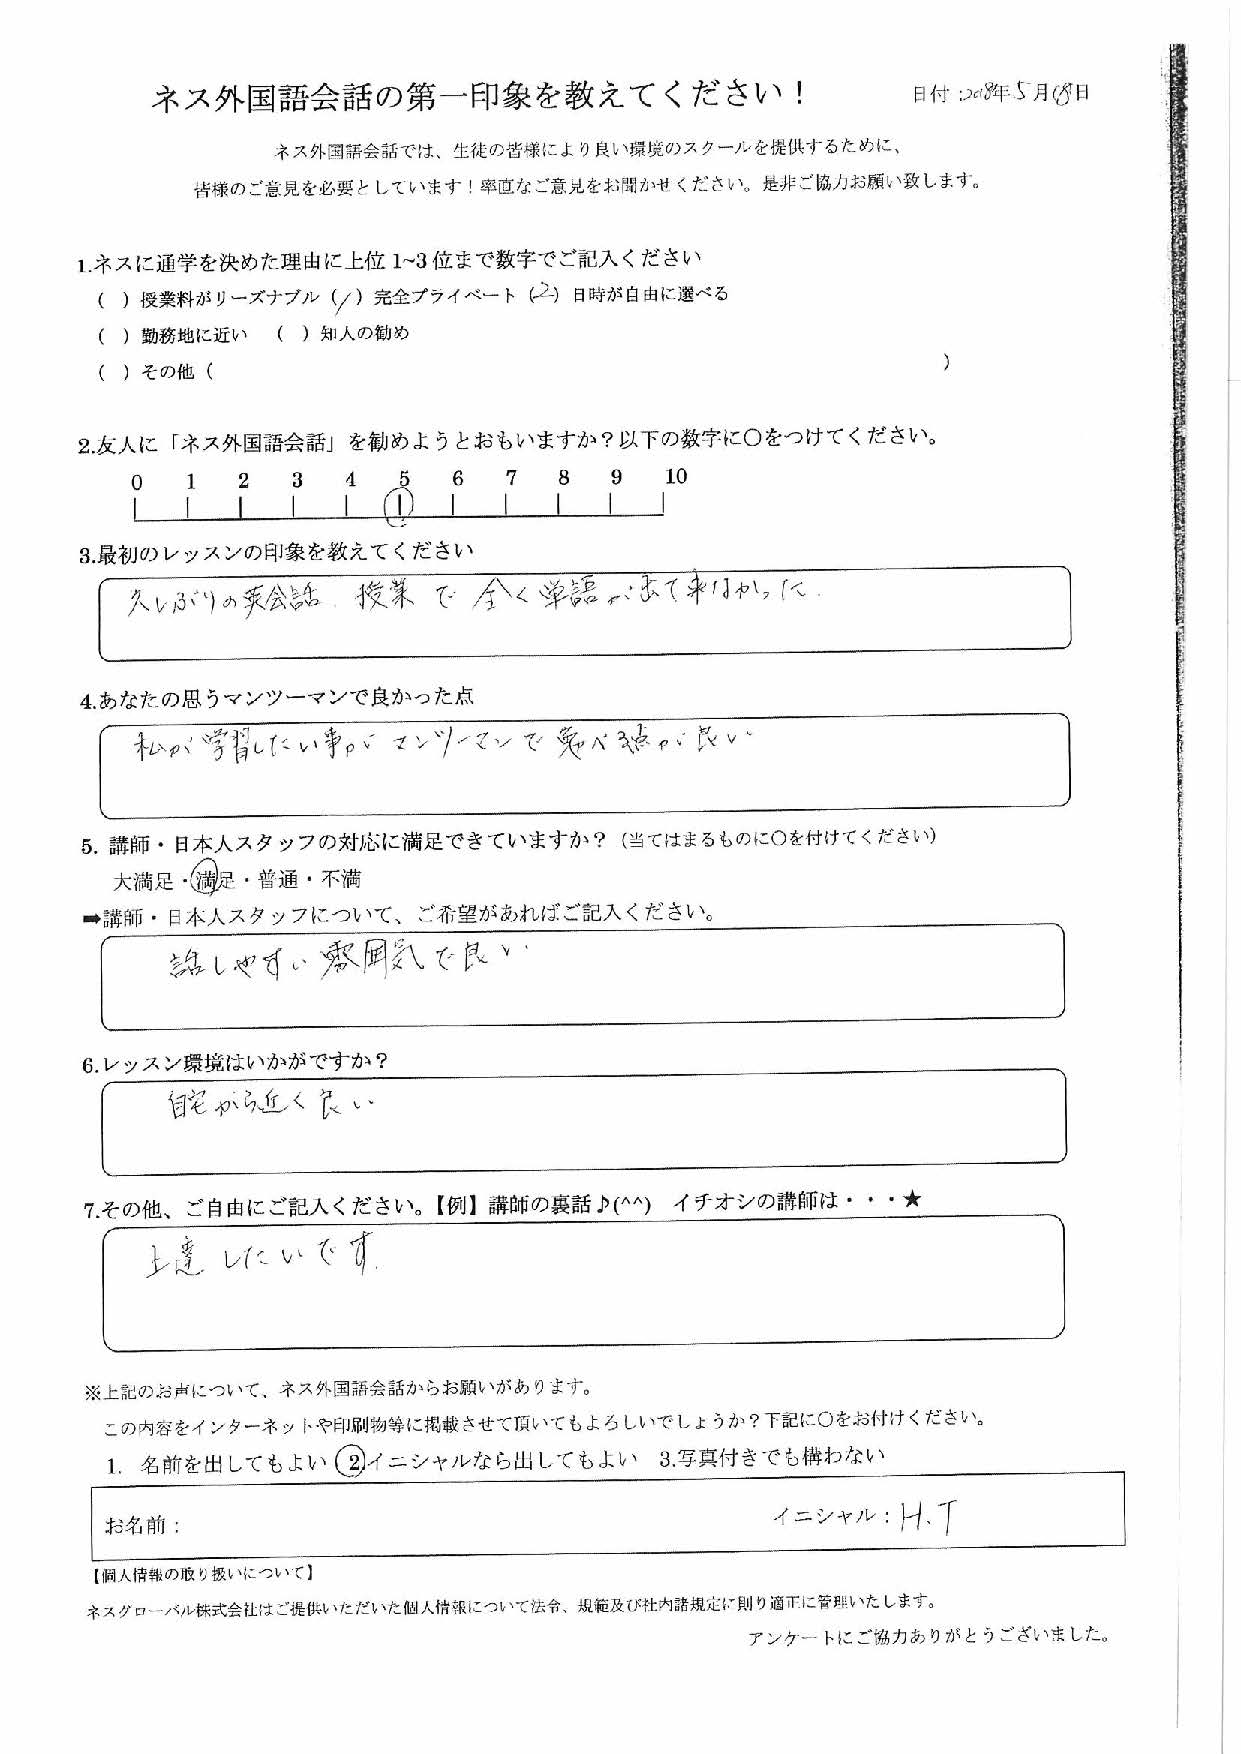 ネス外国語会話の第一印象を教えてください！ 日付：2018年5月18日
ネス外国語会話では、生徒の皆様により良い環境のスクールを提供するために、
皆様のご意見を必要としています！率直なご意見をお聞かせください。是非ご協力お願い致します。
1.ネスに通学を決めた理由に上位 1~3 位まで数字でご記入ください
（ ）授業料がリーズナブル（1）完全プライベート（2）日時が自由に選べる
（ ）勤務地に近い （ ）知人の勧め
（ ）その他（ ）
2.友人に「ネス外国語会話」を勧めようとおもいますか？以下の数字に〇をつけてください。
0 1 2 3 4 5 6 7 8 9 10
3.最初のレッスンの印象を教えてください
久しぶりの英会話 授業で 全く単語が出て来なかった.
4.あなたの思うマンツーマンで良かった点
私が学習したい事が マンツーマンで 学べる点が良い
5. 講師・日本人スタッフの対応に満足できていますか？（当てはまるものに〇を付けてください）
大満足・満足・普通・不満
➡講師・日本人スタッフについて、ご希望があればご記入ください。
話しやすい雰囲気で良い
6.レッスン環境はいかがですか？
自宅から近く良い
7.その他、ご自由にご記入ください。【例】講師の裏話♪(^^) イチオシの講師は・・・★
上達したいです.
※上記のお声について、ネス外国語会話からお願いがあります。
この内容をインターネットや印刷物等に掲載させて頂いてもよろしいでしょうか？下記に〇をお付けください。
1. 名前を出してもよい 2.イニシャルなら出してもよい 3.写真付きでも構わない
お名前： イニシャル：H.T
【個人情報の取り扱いについて】
ネスグローバル株式会社はご提供いただいた個人情報について法令、規範及び社内諸規定に則り適正に管理いたします。
アンケートにご協力ありがとうございました。